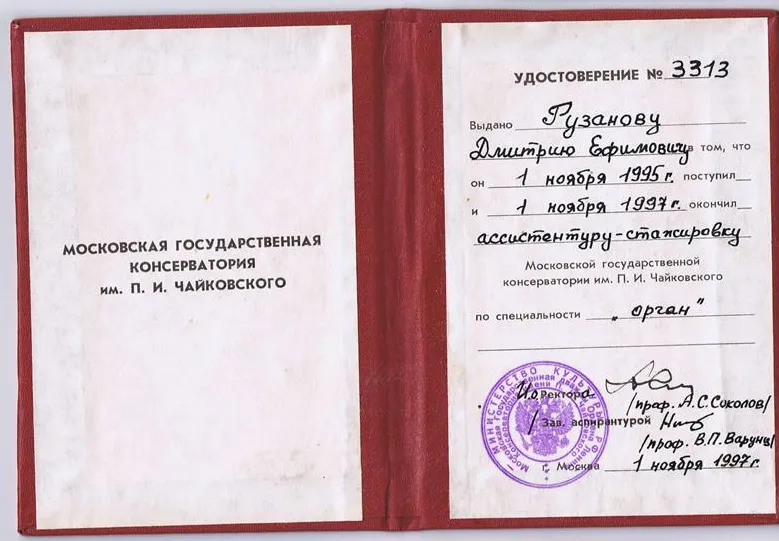 МОСКОВСКАЯ ГОСУДАРСТВЕННАЯ
КОНСЕРВАТОРИЯ
им. П. И. ЧАЙКОВСКОГО
УДОСТОВЕРЕНИЕ № 3313
Выдано Рузанову
Дмитрию Ефимовичу в том, что
он 1 ноября 1995 г. поступил
и 1 ноября 1997 г. окончил
ассистентуру-стажировку
Московской государственной
консерватории им. П. И. Чайковского
по специальности „орган"
И.о. Ректора
/проф. А.С. Соколов/
/Зав. аспирантурой
/проф. В.П. Варунц/
г. Москва 1 ноября 1997 г.
МИНИСТЕРСТВО КУЛЬТУРЫ РФ